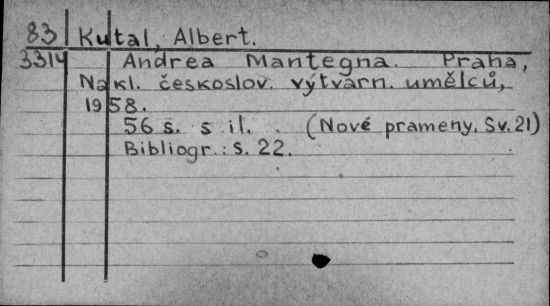 83 Kutal, Albert.
3314 Andrea Mantegna. Praha,
Nakl. českoslov. výtvarn. umělců,
1958.
56 s. s il. (Nové prameny. Sv. 21)
Bibliogr.: s. 22.